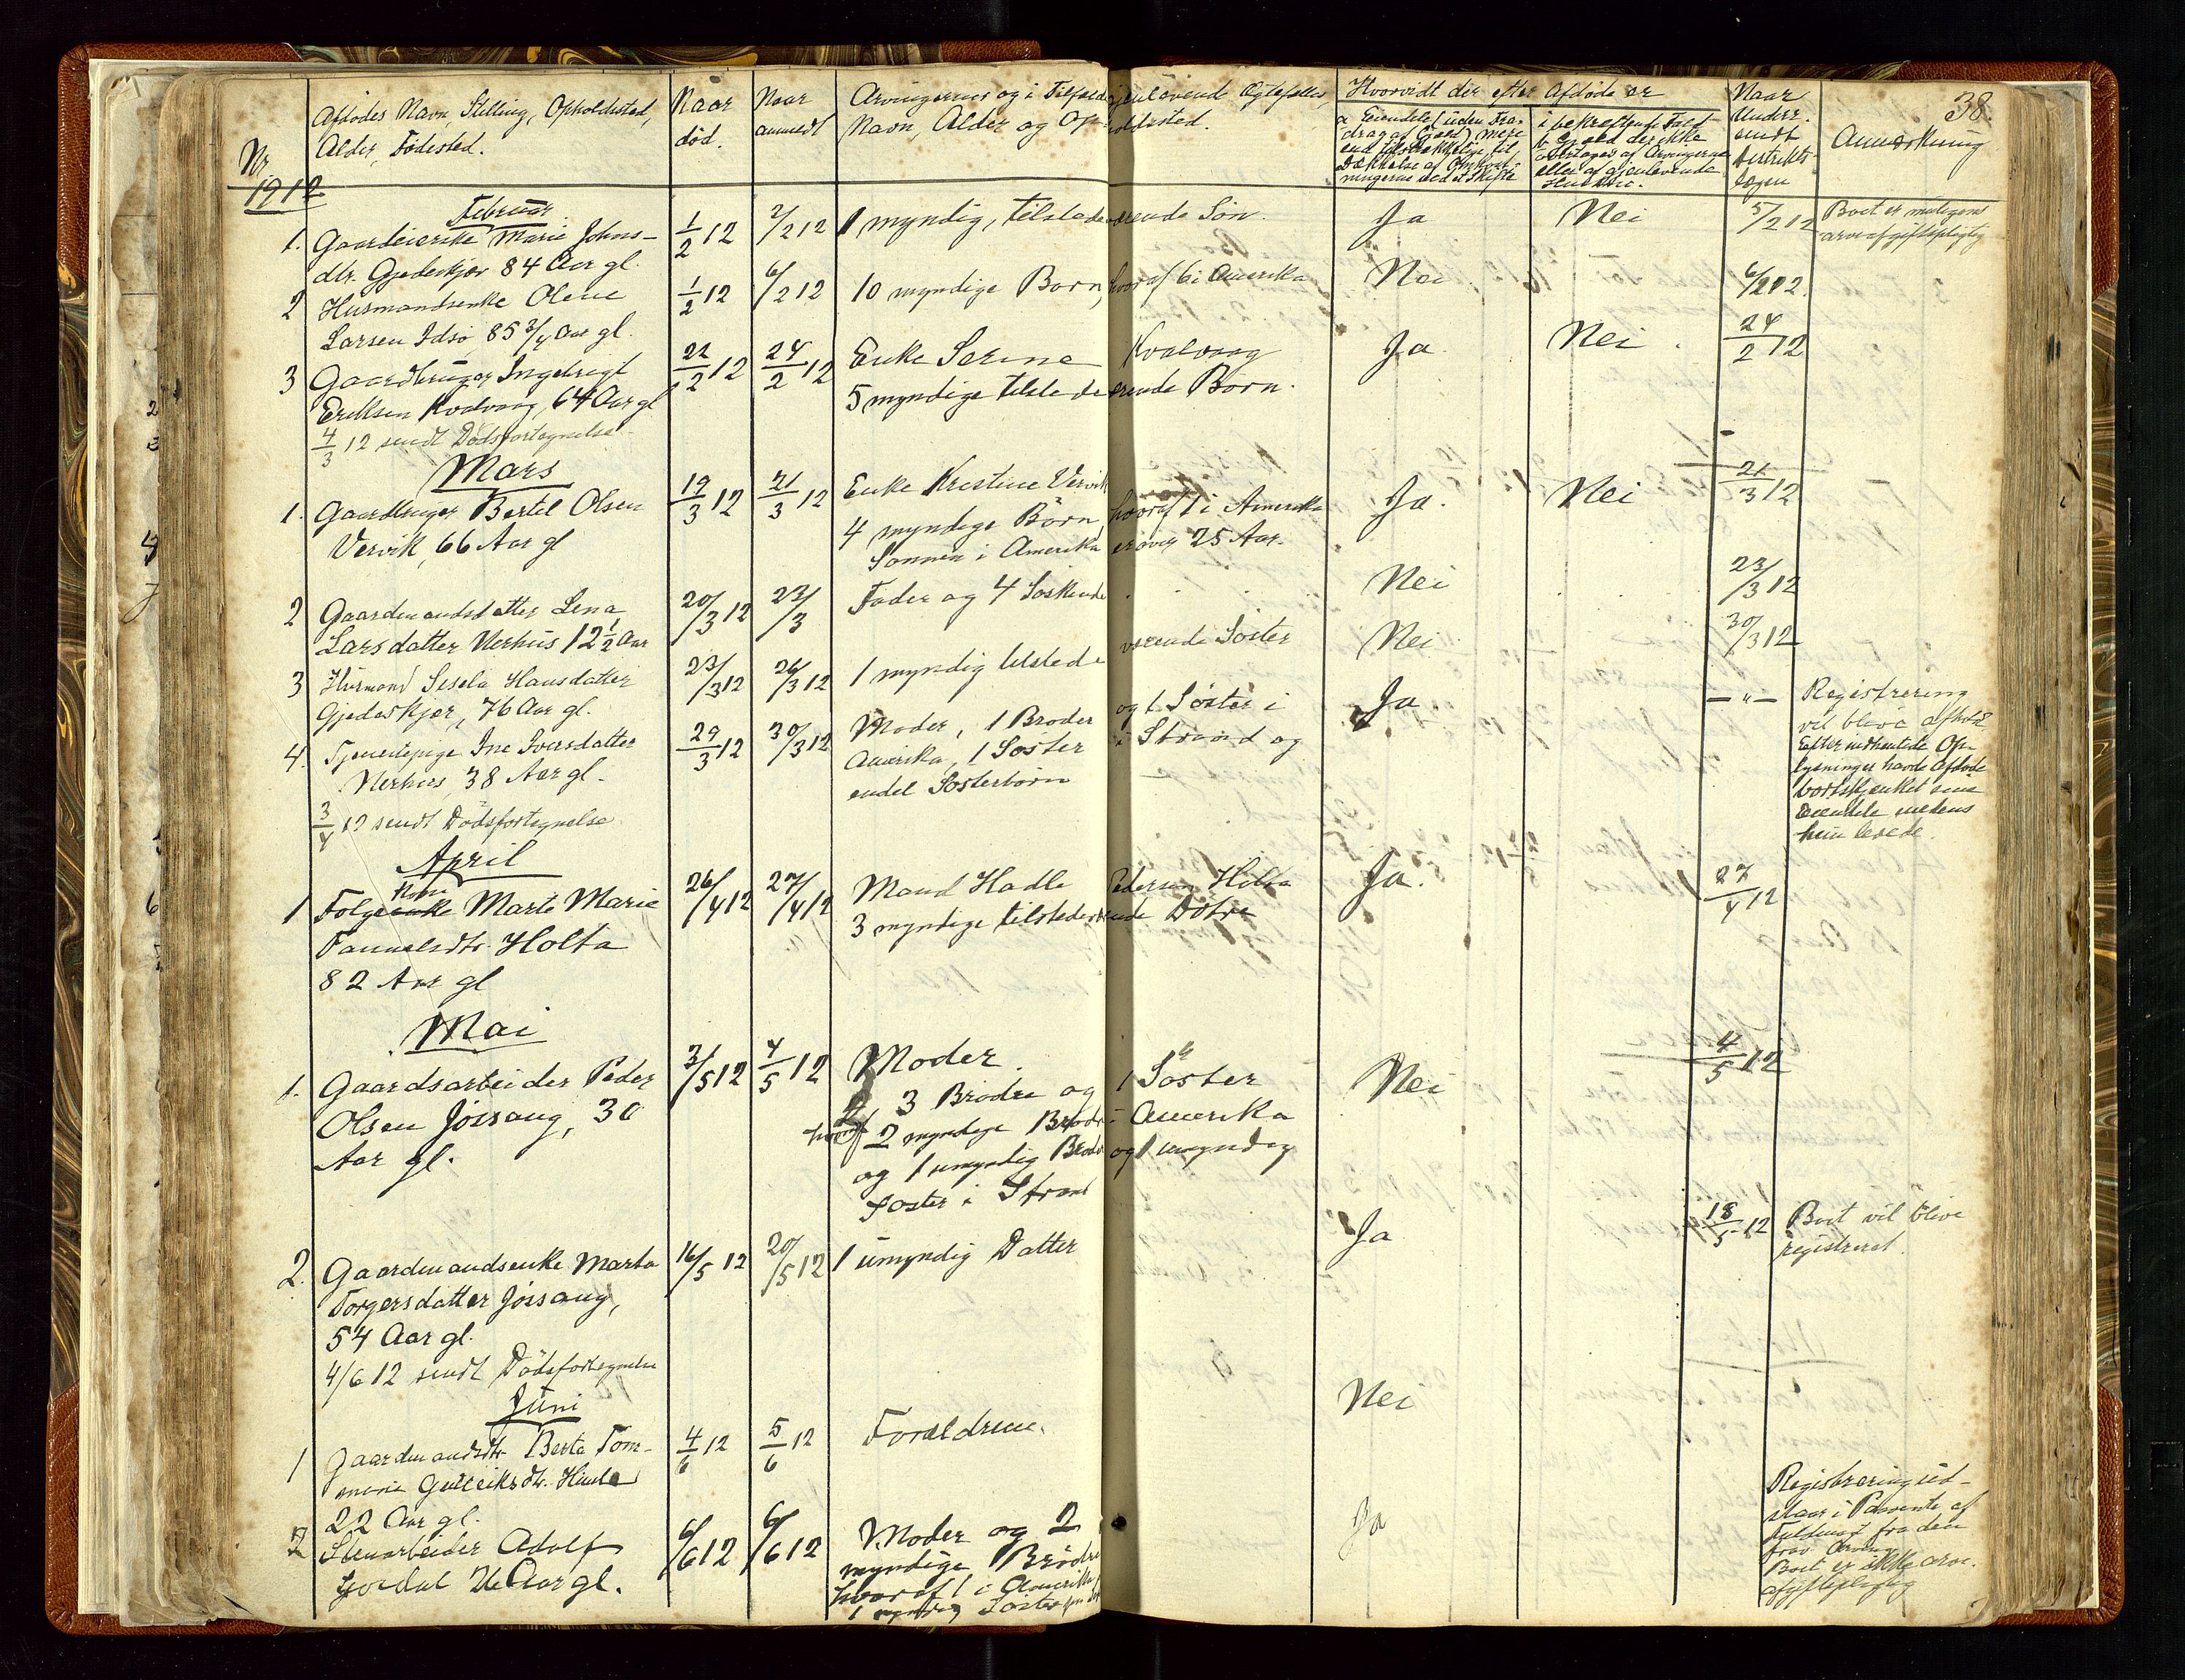 38.
Nr
1912
Afdødes Navn, Stilling, Opholdssted,
Alder, Fødested.
Naar
død.
Naar
anmeldt
Arvingernes og i Tilfælde gjenlevende Ægtefælles
Navn, Alder og Opholdssted.
Hvorvidt der efter Afdøde er
a Eiendele (uden Fra-
drag af Gjæld) mere
end tilstrækkelige til
Dækkelse af Omkost-
ningerne ved et Skifte
i bekræftende Fald
b Gjæld der ikke
overtages af Arvingerne
eller af gjenlevende
Naar
Under-
sendt
Distrikts-
Anmerkning
Februar
1. Gaardeierske Marie Johns-
dtr. Gjedeskjær 84 Aar gl.
1/2 12
2/2 12
1 myndig, tilstedeværende Søn.
Ja
Nei
5/2 12
Boet er muligens
arveafgiftspligtig
2 Husmandsenke Olene
Larsen Idsø 85 3/4 Aar gl.
1/2 12
6/2 12
10 myndige Børn, hvoraf 6 i Amerika
Nei
6/2 12.
3 Gaardbruger Ingebrigt
Eriksen Kvalvaag, 64 Aar gl
22/2 12
24/2 12
Enke Serina Kvalvaag
5 myndige tilstedeværende Børn.
Ja
Nei
24/2 12
4/3 12 sendt Dødsfortegnelse
Mars
1. Gaardbruger Bertel Olsen
Vervik, 66 Aar gl
19/3 12
21/3 12
Enke Kristine Vervik
4 myndige Børn, hvoraf 1 i Amerika
Sønnen i Amerika er over 25 Aar.
Ja.
Nei
21/3 12
2 Gaardmandsdatter Lena
Larsdatter Nerhus 12 1/2 Aar
20/3 12
23/3
Fader og 4 Søskende
Nei
23/3 12
3 Husmand Sesela Hansdatter
Gjedeskjær, 76 Aar gl.
23/3 12
26/3 12
1 myndig tilstedeværende Søster
Nei
30/3 12
4. Tjenestepige Ine Iversdatter
Nerhus, 38 Aar gl.
29/3 12
30/3 12
Moder, 1 Broder og 1 Søster i
Amerika, 1 Søster i Strand og
endel Søsterbørn
Ja
— " —
Registrering
vil blive afholdt
Efter indhentede Op-
lysninger havde Afdøde
bortskjenket sine
Eiendele medens
hun levede.
3/4 12 sendt Dødsfortegnelse
April
1 Folgekone Marte Marie
Samuelsdtr. Holta
82 Aar gl
26/4 12
27/4 12
Mand Hadle Pedersen Holta
3 myndige tilstedeværende Døtre
Ja.
27/4 12
Mai
1. Gaardsarbeider Peder
Olsen Jøssang, 30
Aar gl.
3/5 12
4/5 12
Moder.
3 Brødre og 1 Søster
hvoraf 2 myndige Brødre i Amerika
og 1 umyndig Broder og 1 umyndig
Søster i Strand
Nei
4/5 12
2. Gaardmandsenke Marta
Torgersdatter Jøssang,
54 Aar gl.
16/5 12
20/5 12
1 umyndig Datter
Ja
18/5 12
Boet vil blive
registreret.
4/6 12 sendt Dødsfortegnelse
Juni
1 Gaardmandsdtr. Berta Tom-
mine Gutteiksdtr. Himle
22 Aar gl.
4/6 12
5/6 12
Forældrene.
Nei
2 Stenarbeider Adolf
Aar gl.
6/6 12
6/6 12
Moder og 2
myndige Brødre
hvoraf 1 i Amerika
1 myndig Søster
Ja
Registrering ud-
staar i Pavente af
Fuldmagt fra den
frav. Arving
Boet er ikke arve-
afgiftspligtig